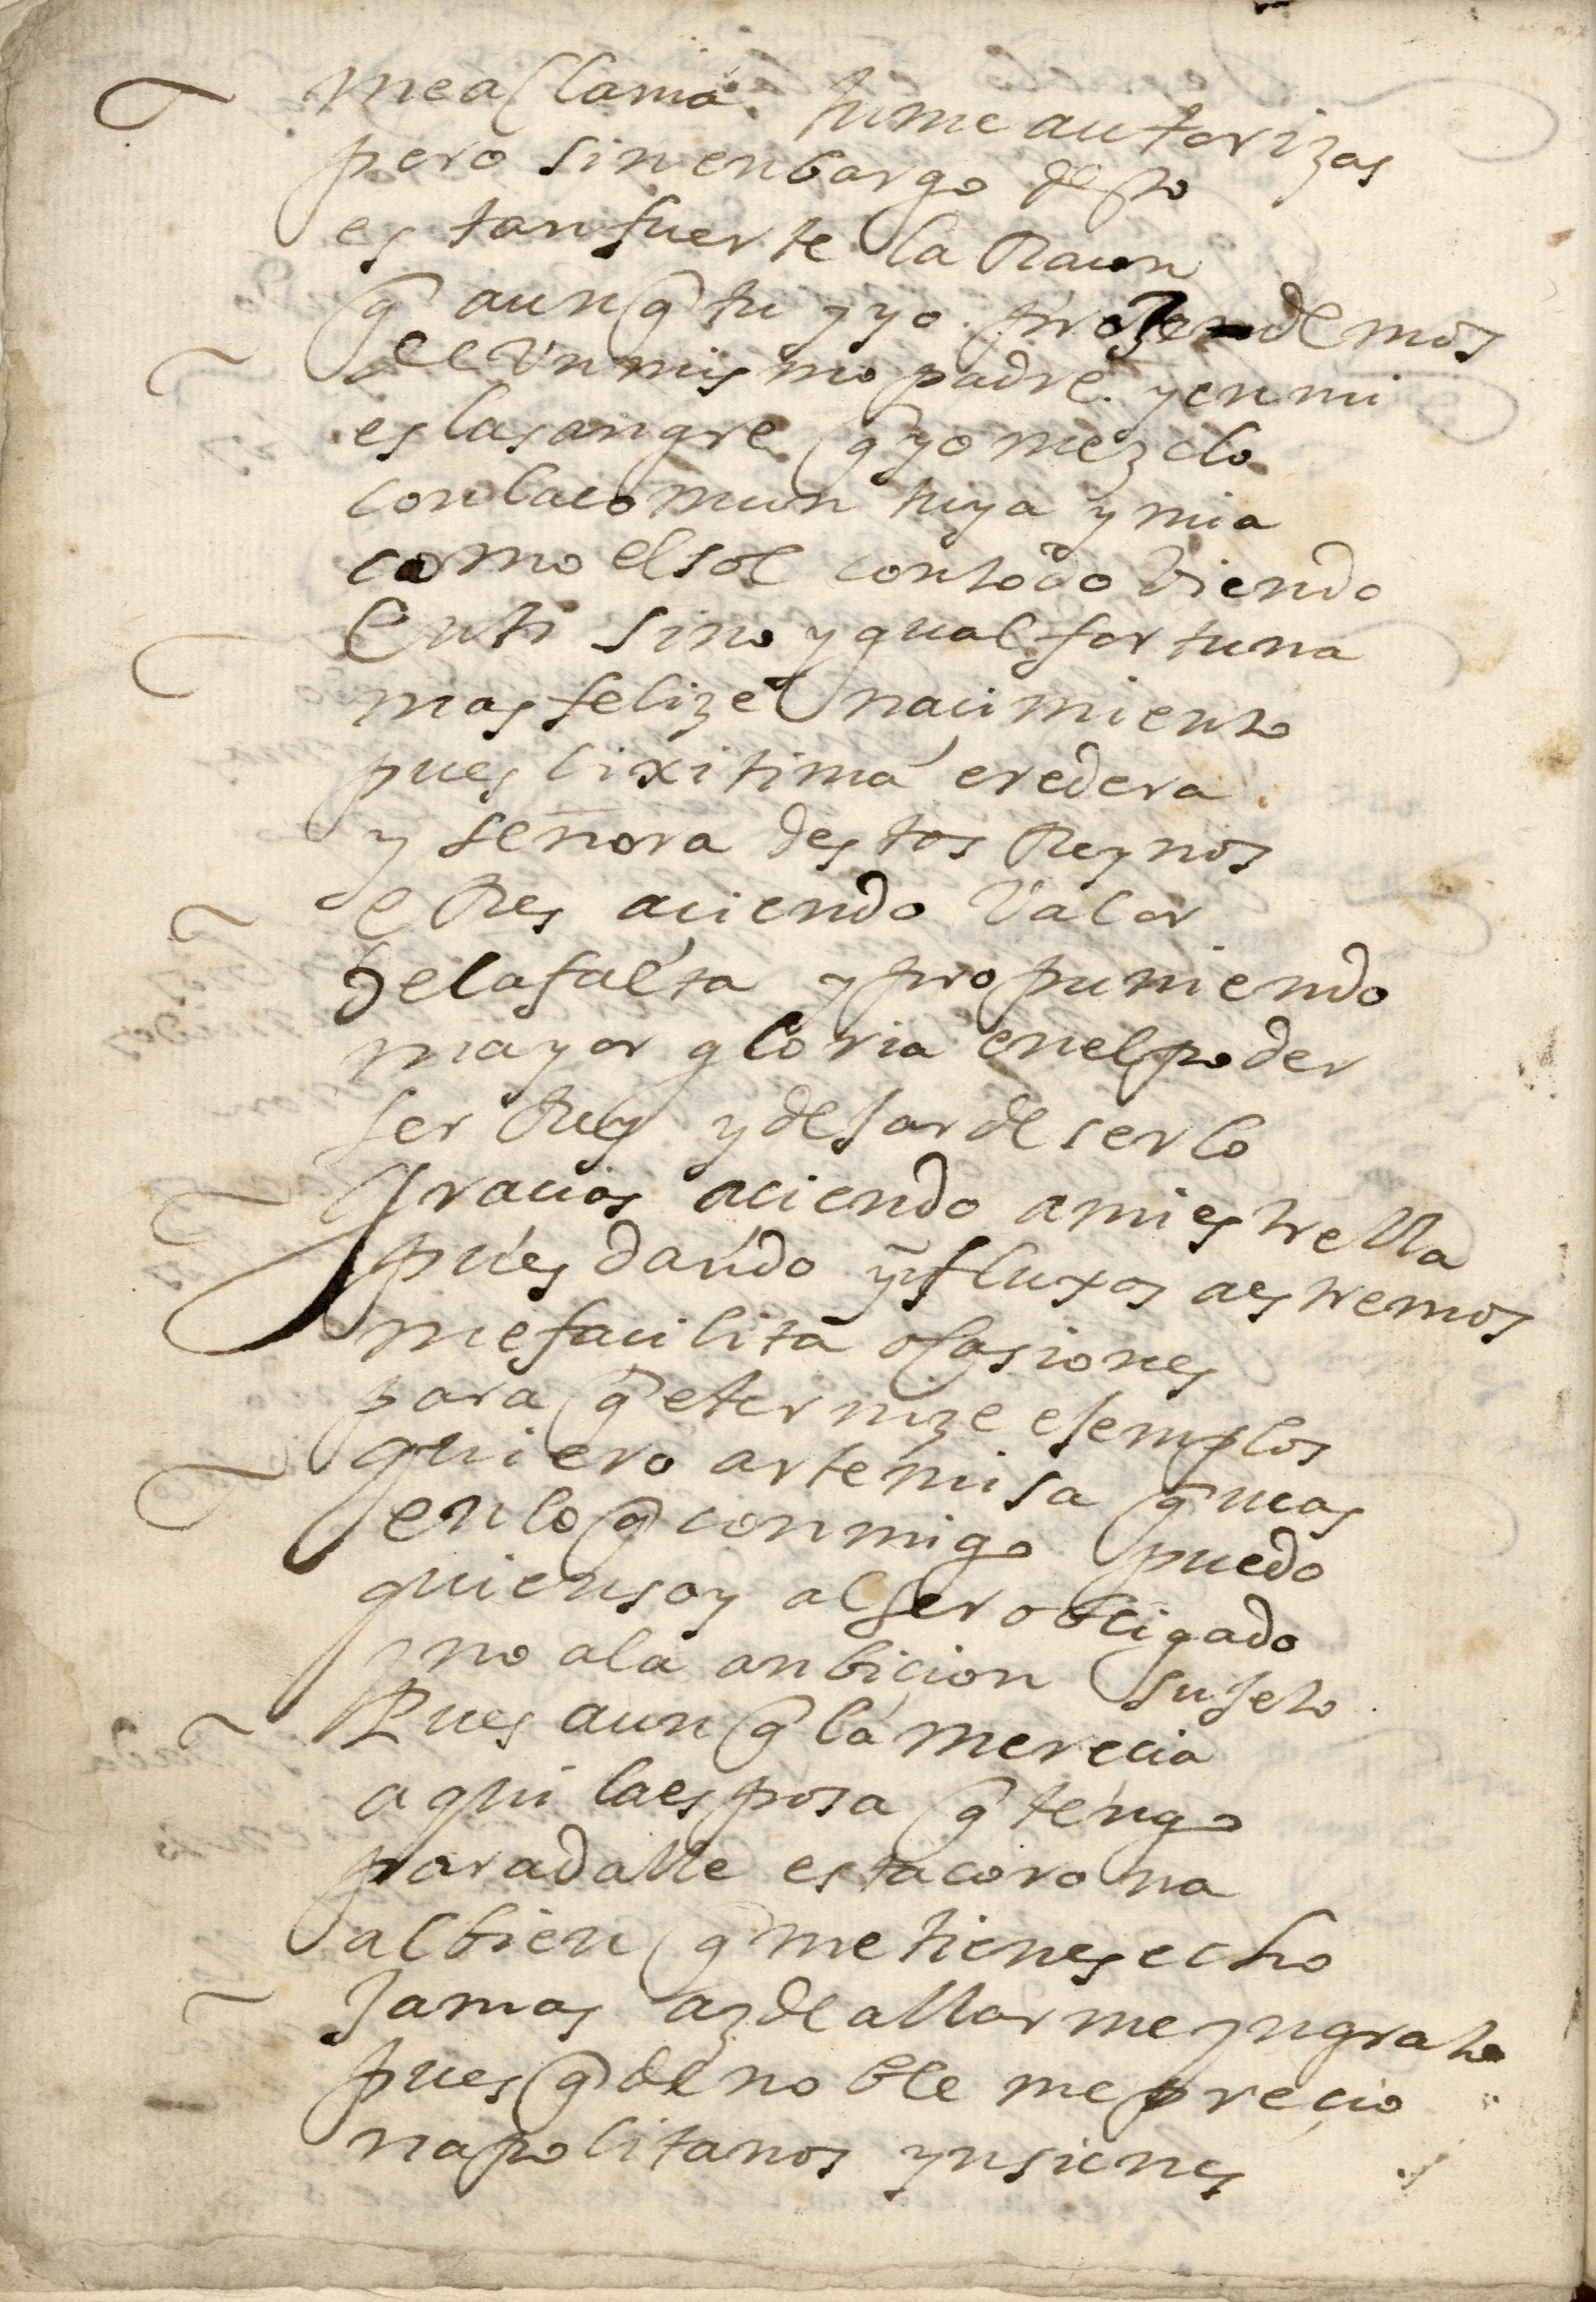 me aclama. tu me autorizas
pero sin enbargo desto
es tan fuerte la Raçon
q̃ aunq̃ tu y yo. prozedemos
de Vn mismo padre. y en mi
es la sangre q̃ yo mezclo
con la comun tuya y mia
como el sol con lodo Viendo
En ti sino ygual fortuna
mas felize naçimiento
pues lixitima eredera.
y señora destos Reynos
eres aciendo Valor
de la falta y propuniendo
mayor gloria en el poder
ser Rey y dejar de serlo
Gracias aciendo a mi estrella
pues dando ynfluxos a estremos
me facilita ocasiones
para q̃ eternize ejemplos
quiero artemisa q̃ ueas
en lo q̃ conmigo puedo
quien soy al ser obligado
y no a la anbiçion sujeto.
Pues aun q̃ la merecia
aqui la esposa q̃ tengo
para dalle esta corona
al bien q̃ me tienes echo
Jamas as de allarme yngrato
pues q̃ de noble me preçio
napolitanos ynsignes